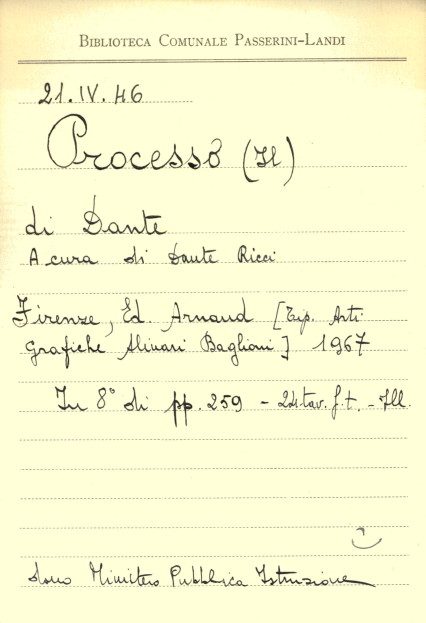 BIBLIOTECA COMUNALE PASSERINI-LANDI
21.IV.46
Processo (Il)
di Dante
A cura di Dante Ricci
Firenze, Ed. Arnaud [Tip. Arti
Grafiche Alinari Baglioni] 1967
In 8° di pp. 259 - 24 tav. f.t. - Ill.
dono Ministero Pubblica Istruzione